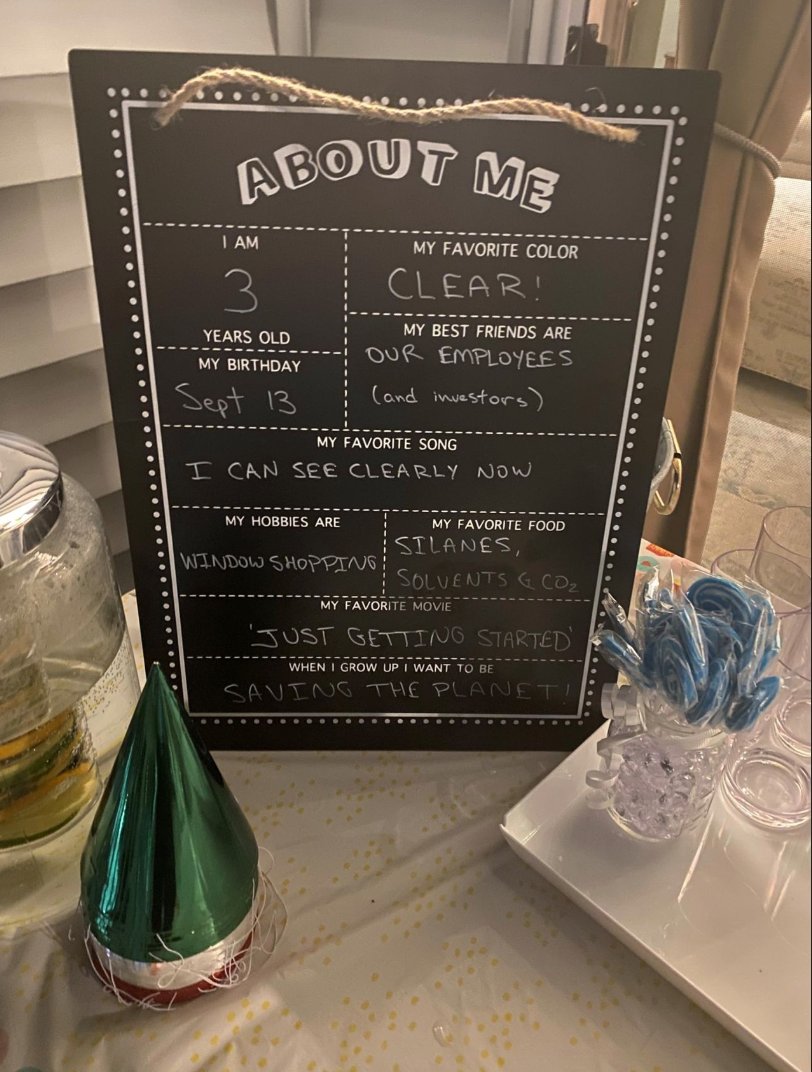 ABOUT ME
I AM
3
YEARS OLD
MY BIRTHDAY
Sept 13
MY FAVORITE COLOR
CLEAR!
MY BEST FRIENDS ARE
OUR EMPLOYEES
(and investors)
MY FAVORITE SONG
I CAN SEE CLEARLY NOW
MY HOBBIES ARE
WINDOW SHOPPING
MY FAVORITE FOOD
SILANES,
SOLVENTS & CO2
MY FAVORITE MOVIE
'JUST GETTING STARTED'
WHEN I GROW UP I WANT TO BE
SAVING THE PLANET!